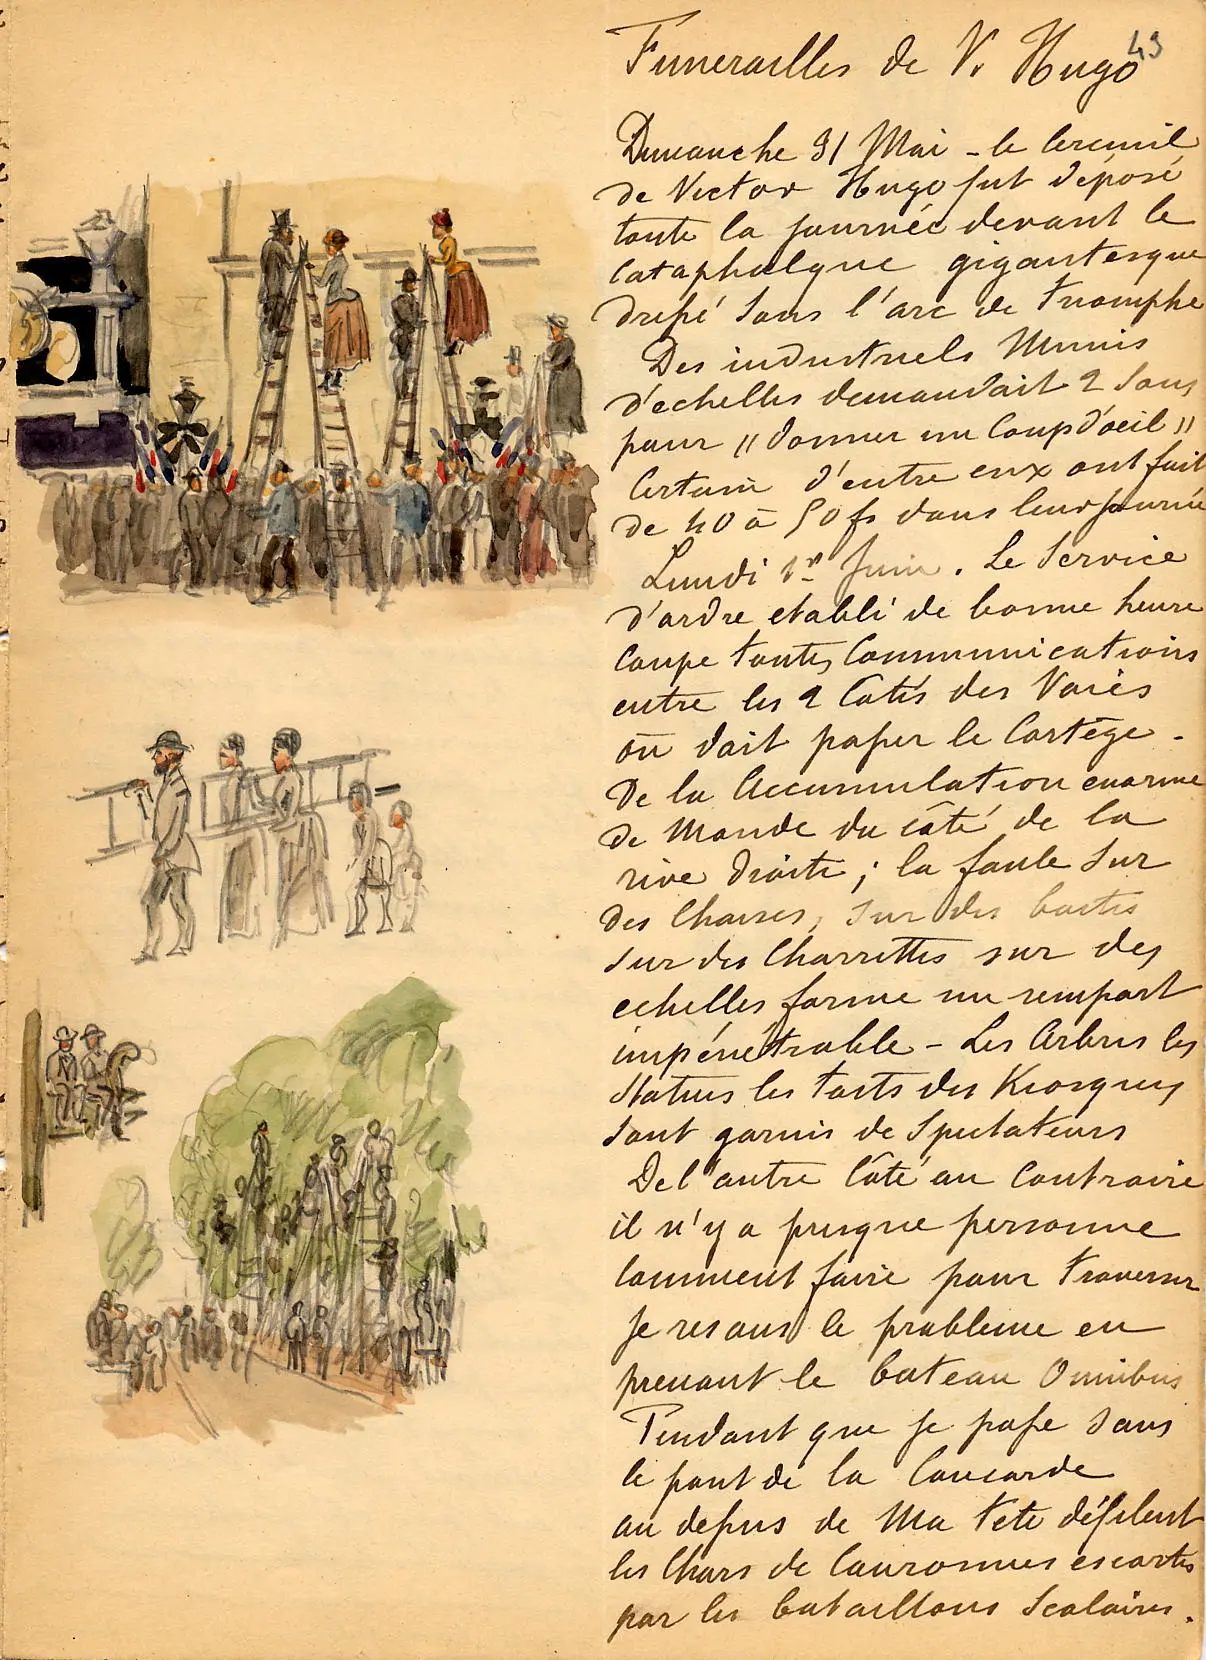 43
Funerailles de V. Hugo
Dimanche 31 Mai - le Cercueil
de Victor Hugo fut déposé
toute la journée devant le
Cataphalque gigantesque
dressé sous l'arc de triomphe
Des industriels Munis
d'echelles demandait 2 sous
pour "donner un Coup d'oeil"
Certain d'entre eux ont fait
de 40 à 50 fs dans leur journée
Lundi 1er Juin. Le Service
d'ordre etabli de bonne heure
Coupe toutes Communications
entre les 2 Cotés des Voies
où doit passer le Cortège -
De la Accumulation enorme
de Monde du côté de la
rive droite ; la foule sur
des Chaises, sur des boites
sur des Charrettes sur des
echelles forme un rempart
impénétrable - Les Arbres les
Statues les toits des Kiosques
sont garnis de Spectateurs
De l'autre Côté au Contraire
il n'y a presque personne
Comment faire pour traverser
Je resous le probleme en
prenant le bateau Omnibus
Pendant que je passe sous
le pont de la Concorde
au depus de Ma tete défilent
les Chars de Couronnes escortés
par les bataillons Scolaires.